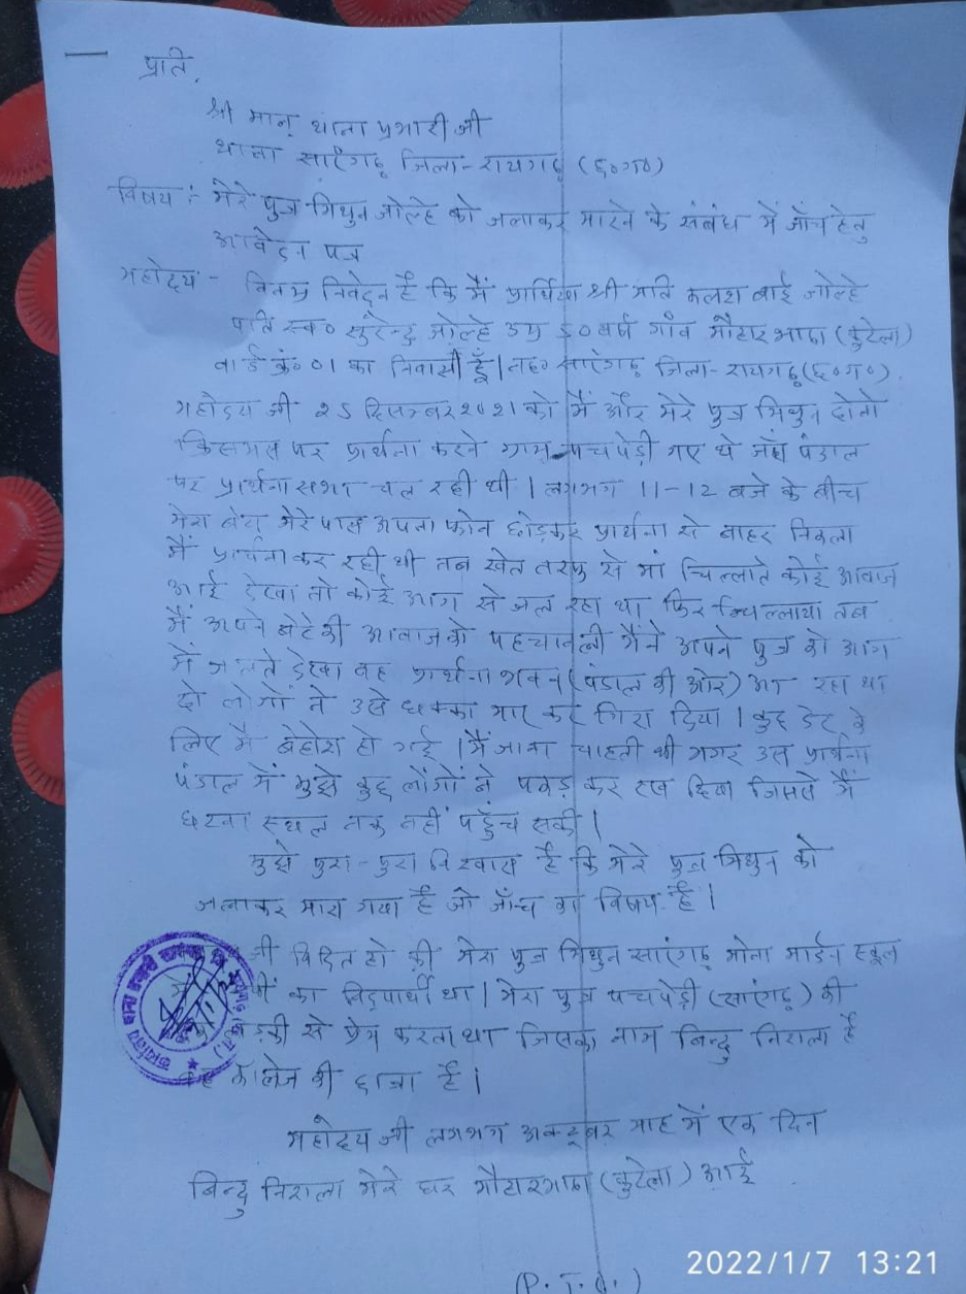 प्रति,
श्री मान् थाना प्रभारी जी
थाना सारंगढ़ जिला-रायगढ़ (छ०ग०)
विषय: मेरे पुत्र मिथुन जोल्हे को जलाकर मारने के संबंध में जाँच हेतु
आवेदन पत्र
महोदय - विनम्र निवेदन है कि मैं प्रार्थिया श्री मति कलश बाई जोल्हे
पति स्व० सुरेन्द्र जोल्हे उम्र 50 वर्ष गाँव भौठारभाठा (कुटेला)
वार्ड क्रं० 01 का निवासी हूँ। तह० सारंगढ़ जिला-रायगढ़ (छ०ग०)
महोदय जी 25 दिसम्बर 2021 को मैं और मेरे पुत्र मिथुन दोनो
क्रिसमस पर प्रार्थना करने ग्राम पचपेड़ी गए थे जहाँ पंडाल
पर प्रार्थना सभा चल रही थी। लगभग 11-12 बजे के बीच
मेरा बेटा मेरे पास अपना फोन छोड़कर प्रार्थना से बाहर निकला
मैं प्रार्थना कर रही थी तब खेत तरफ से मां चिल्लाते कोई आवाज
आई देखा तो कोई आग से जल रहा था फिर चिल्लाया तब
मैं अपने बेटे की आवाज को पहचान ली मैंने अपने पुत्र को आग
में जलते देखा वह प्रार्थना भवन (पंडाल की ओर) आ रहा था
दो लोगों ने उसे धक्का मार कर गिरा दिया। कुछ देर के
लिए मैं बेहोश हो गई। मैं जाना चाहती थी मगर उस प्रार्थना
पंडाल में मुझे कुछ लोगों ने पकड़ कर रख दिया जिससे मैं
घटना स्थल तक नहीं पहुँच सकी।
मुझे पुरा-पुरा विश्वास है कि मेरे पुत्र मिथुन को
जलाकर मारा गया है जो जाँच का विषय है।
जी विदित हो की मेरा पुत्र मिथुन सारंगढ़ मोना मार्डन स्कूल
का विद्यार्थी था। मेरा पुत्र पचपेड़ी (सारंगढ़) की
लड़की से प्रेम करता था जिसका नाम बिन्दु निराला है
वह कॉलेज की छात्रा है।
महोदय जी लगभग अक्टूबर माह में एक दिन
बिन्दु निराला मेरे घर भौठारभाठा (कुटेला) आई
(P.T.O.)
2022/1/7 13:21